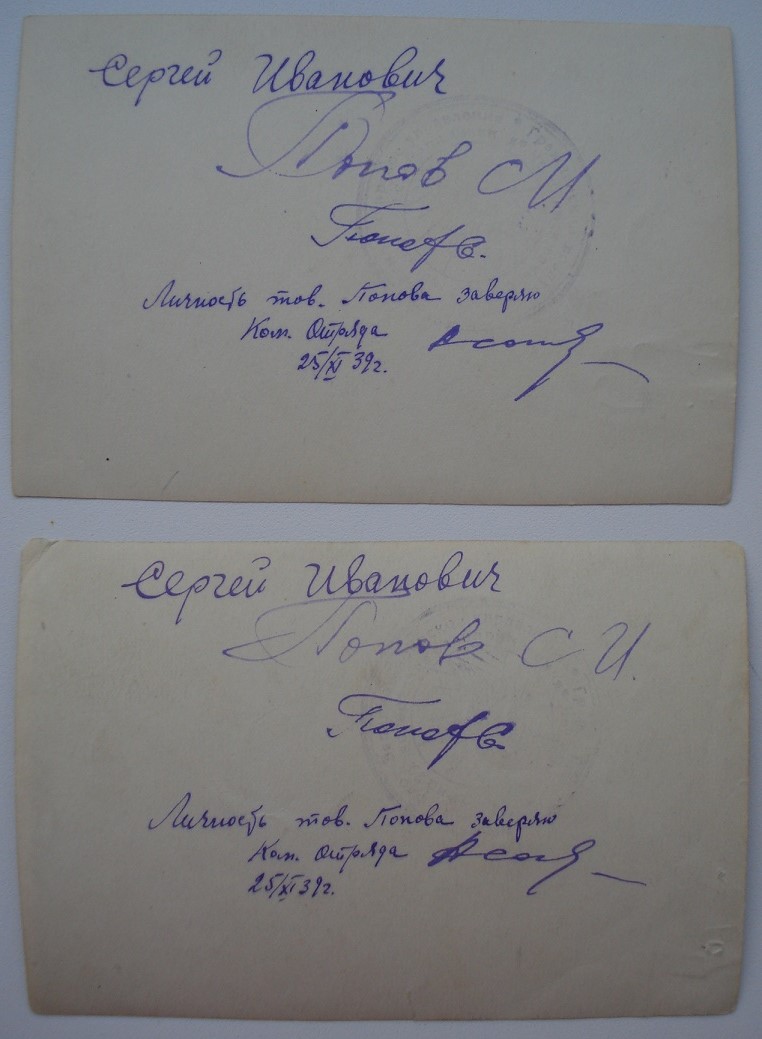 Сергей Иванович
Попов С И
Попов С.
Личность тов. Попова заверяю
Ком. Отряда
25/XI 39г.
Сергей Иванович
Попов С И.
Попов С.
Личность тов. Попова заверяю
Ком. Отряда
25/XI 39г.